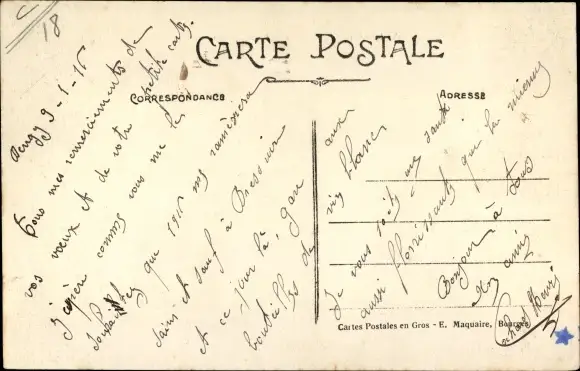 18
CARTE POSTALE
CORRESPONDANCE
ADRESSE
9-1-15
Tous mes remerciements de
vos vœux et de votre petite carte
J'espère comme vous me le
souhaitez que 1915 me ramènera
sain et sauf à Bressuire
et ce jour là, gare
aux
bouteilles de
vin blanc
Je vous sais une santé
aussi florissante que la mienne
Bonjour à tous
mes amis
Henri
Cartes Postales en Gros - E. Maquaire, Bourges